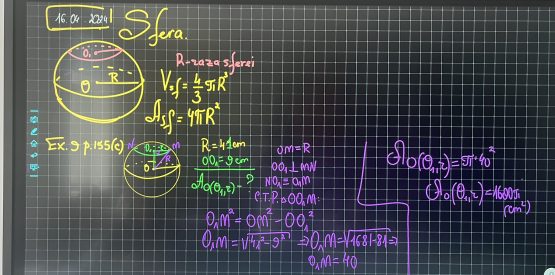 16.04.2024
Sfera.
O₁ r
O R
R-raza sferei
V sf = 4/3 πR³
A sf = 4πR²
Ex. 9 p.155(c)
N O₁ M
O R
R = 41cm
OO₁ = 9cm
A○(O₁,r) - ?
OM = R
OO₁ ⊥ MN
NO₁ = O₁M
C.T.P. △OO₁M:
O₁M² = OM² - OO₁²
O₁M = √(41² - 9²) ⇒ O₁M = √(1681-81) ⇒
O₁M = 40
A○(O₁,r) = π·40²
A○(O₁,r) = 1600π
(cm²)